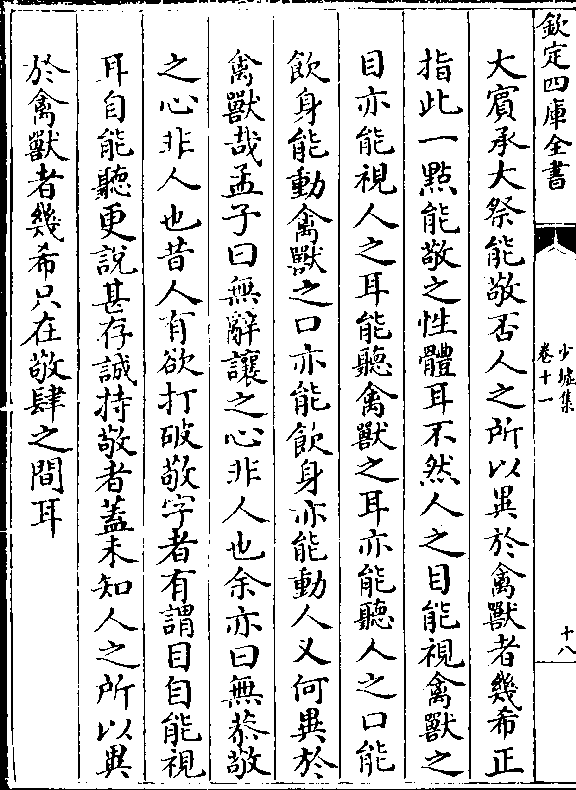 欽定四庫全書
少墟集
卷十一
十八
大賓承大祭能敬否人之所以異於禽獸者幾希正
指此一點能敬之性體耳不然人之目能視禽獸之
目亦能視人之耳能聽禽獸之耳亦能聽人之口能
飲身能動禽獸之口亦能飲身亦能動人又何異於
禽獸哉孟子曰無辭讓之心非人也余亦曰無恭敬
之心非人也昔人有欲打破敬字者有謂目自能視
耳自能聽更說甚存誠持敬者蓋未知人之所以異
於禽獸者幾希只在敬肆之間耳